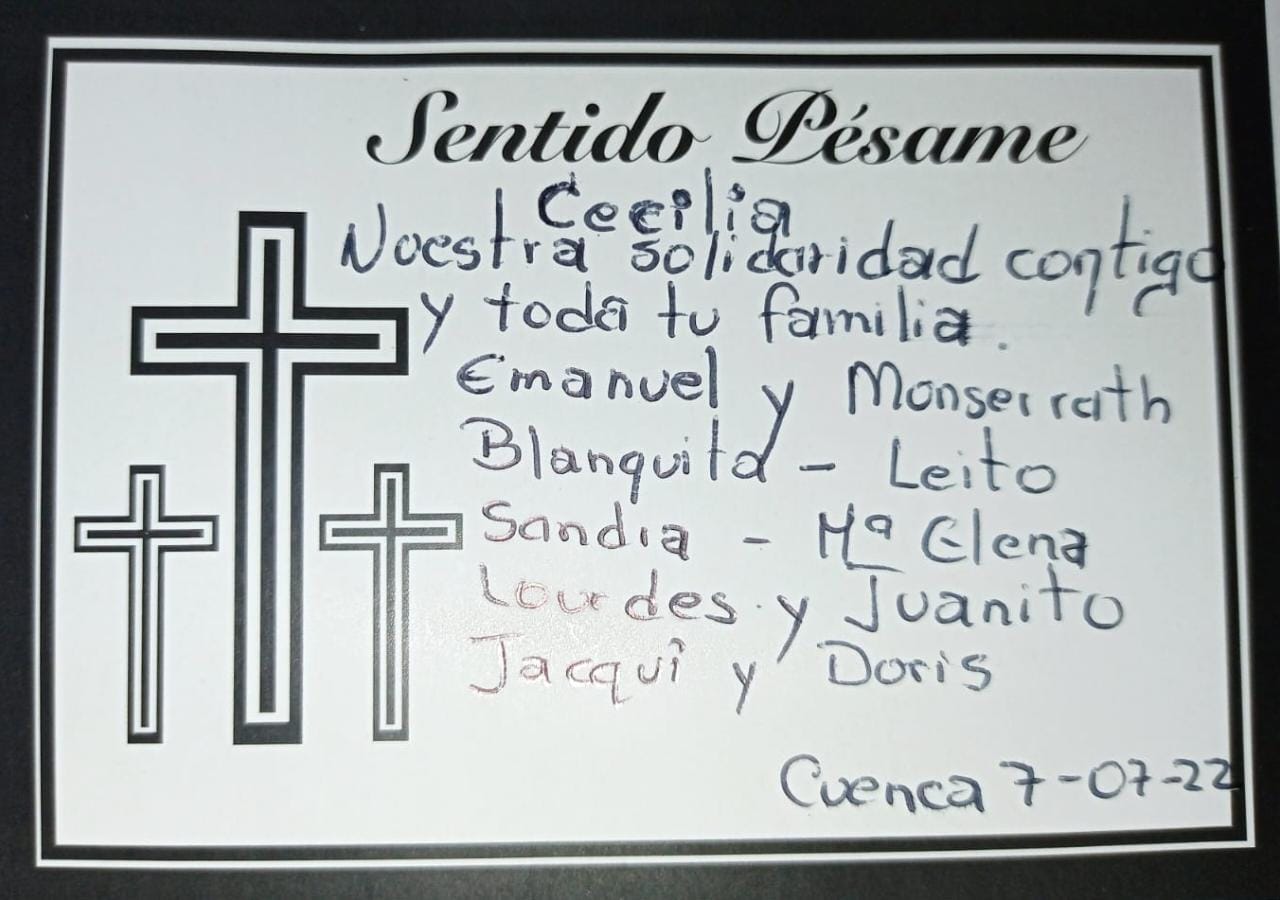 Sentido Pésame
Cecilia
Nuestra solidaridad contigo
y toda tu familia.
Emanuel y Monserrath
Blanquita - Leito
Sandra - Mª Elena
Lourdes y Juanito
Jacqui y Doris
Cuenca 7-07-22